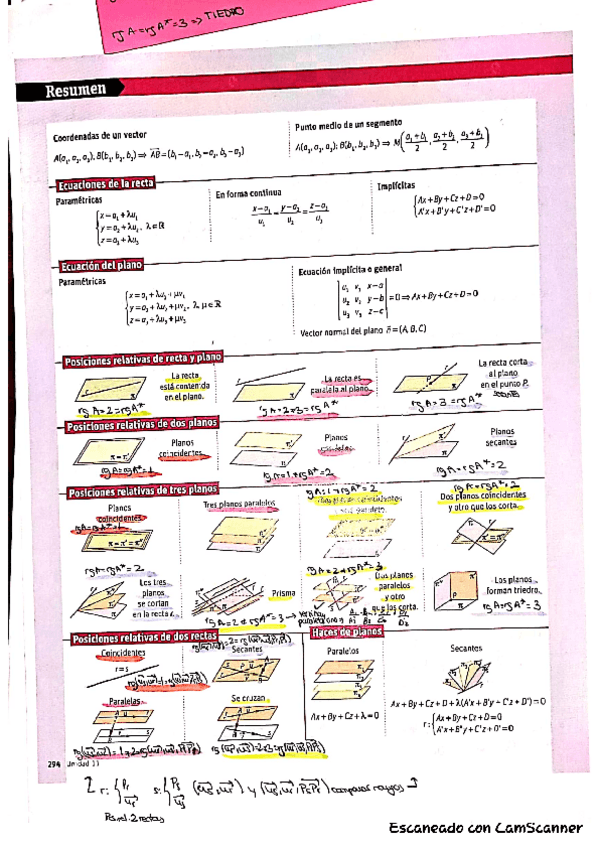 rg A = rg A* = 3 => TIEDRO
Resumen
Coordenadas de un vector
A(a₁, a₂, a₃), B(b₁, b₂, b₃) ⇒ AB = (b₁ − a₁, b₂ − a₂, b₃ − a₃)
Punto medio de un segmento
A(a₁, a₂, a₃); B(b₁, b₂, b₃) ⇒ M(a₁ + b₁/2, a₂ + b₂/2, a₃ + b₃/2)
Ecuaciones de la recta
Paramétricas
x = a₁ + λu₁
y = a₂ + λu₂, λ ∈ ℝ
z = a₃ + λu₃
En forma continua
x − a₁/u₁ = y − a₂/u₂ = z − a₃/u₃
Implícitas
Ax + By + Cz + D = 0
A'x + B'y + C'z + D' = 0
Ecuación del plano
Paramétricas
x = a₁ + λu₁ + μv₁
y = a₂ + λu₂ + μv₂, λ, μ ∈ ℝ
z = a₃ + λu₃ + μv₃
Ecuación implícita o general
u₁ v₁ x − a
u₂ v₂ y − b = 0 ⇒ Ax + By + Cz + D = 0
u₃ v₃ z − c
Vector normal del plano n = (A, B, C)
Posiciones relativas de recta y plano
La recta
está contenida
en el plano.
rg A = 2 = rg A*
La recta es
paralela al plano.
rg A = 2 ≠ 3 = rg A*
La recta corta
al plano
en el punto P.
rg A = 3 = rg A*
Posiciones relativas de dos planos
Planos
coincidentes
rg A = rg A* = 1
Planos
rg A = 1 ≠ rg A* = 2
Planos
secantes
rg A = rg A* = 2
Posiciones relativas de tres planos
Planos
coincidentes
rg A = rg A* = 1
π = π' = π''
Tres planos paralelos
rg A = 1 ≠ rg A* = 2
rg A = rg A* = 2
Dos planos coincidentes
y otro que los corta.
rg A = rg A* = 2
Los tres
planos
se cortan
en la recta r.
Prisma
rg A = 2 ≠ rg A* = 3
rg A = 2 ≠ rg A* = 3
Dos planos
paralelos
y otro
que los corta.
Los planos
forman triedro.
rg A = rg A* = 3
Posiciones relativas de dos rectas
Coincidentes
r = s
Secantes
Paralelas
Se cruzan
Haces de planos
Paralelos
Ax + By + Cz + λ = 0
Secantes
Ax + By + Cz + D + λ(A'x + B'y + C'z + D') = 0
r: Ax + By + Cz + D = 0
A'x + B'y + C'z + D' = 0
294 Unidad 11
Pos rel. 2 rectas
Escaneado con CamScanner